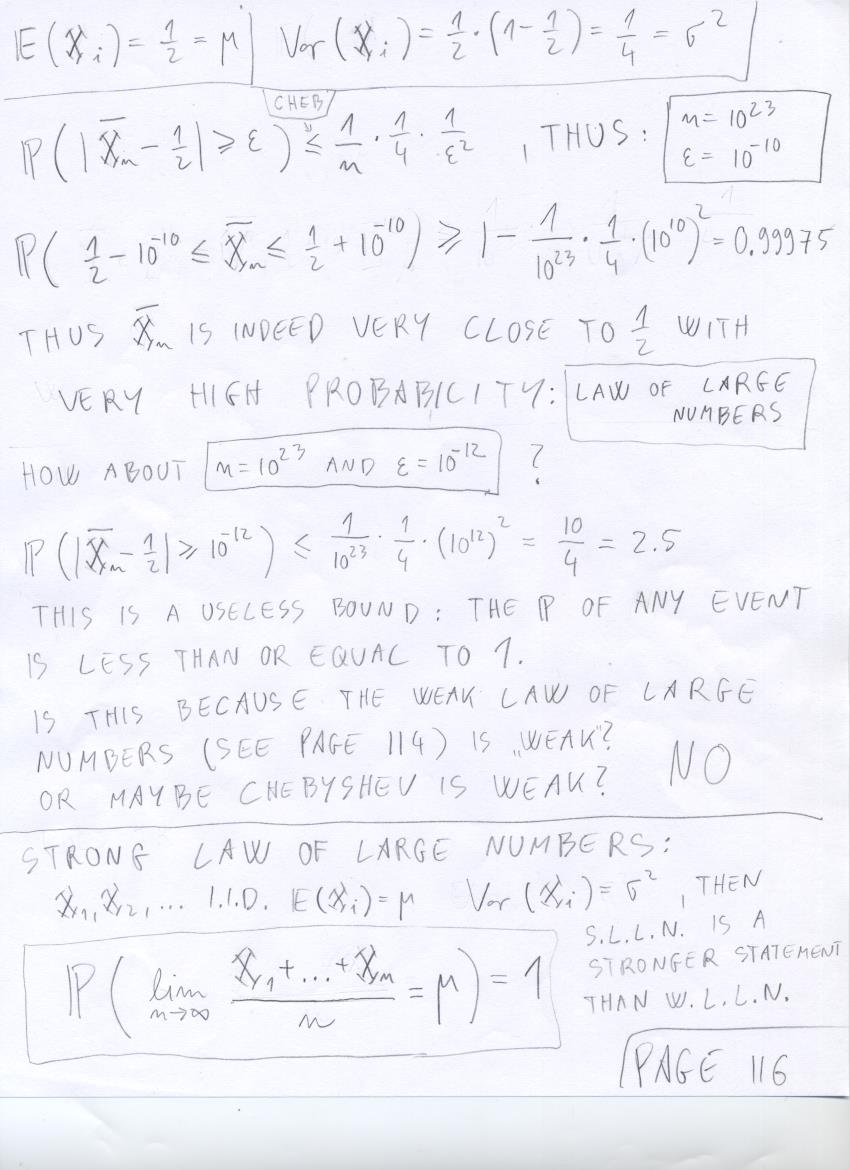 𝔼(X_i) = 1/2 = μ | Var(X_i) = 1/2 · (1 − 1/2) = 1/4 = σ²
CHEB
ℙ(|X̄_n − 1/2| ≥ ε) ≤ 1/n · 1/4 · 1/ε² , THUS: n = 10²³
ε = 10⁻¹⁰
ℙ(1/2 − 10⁻¹⁰ ≤ X̄_n ≤ 1/2 + 10⁻¹⁰) ≥ 1 − 1/10²³ · 1/4 · (10¹⁰)² = 0.99975
THUS X̄_n IS INDEED VERY CLOSE TO 1/2 WITH
VERY HIGH PROBABILITY: LAW OF LARGE
NUMBERS
HOW ABOUT n = 10²³ AND ε = 10⁻¹² ?
ℙ(|X̄_n − 1/2| ≥ 10⁻¹²) ≤ 1/10²³ · 1/4 · (10¹²)² = 10/4 = 2.5
THIS IS A USELESS BOUND: THE ℙ OF ANY EVENT
IS LESS THAN OR EQUAL TO 1.
IS THIS BECAUSE THE WEAK LAW OF LARGE
NUMBERS (SEE PAGE 114) IS „WEAK"?
OR MAYBE CHEBYSHEV IS WEAK? NO
STRONG LAW OF LARGE NUMBERS:
X_1, X_2, ... I.I.D. 𝔼(X_i) = μ Var(X_i) = σ² , THEN
S.L.L.N. IS A
STRONGER STATEMENT
THAN W.L.L.N.
ℙ(lim_{n→∞} (X_1 + ... + X_n)/n = μ) = 1
PAGE 116